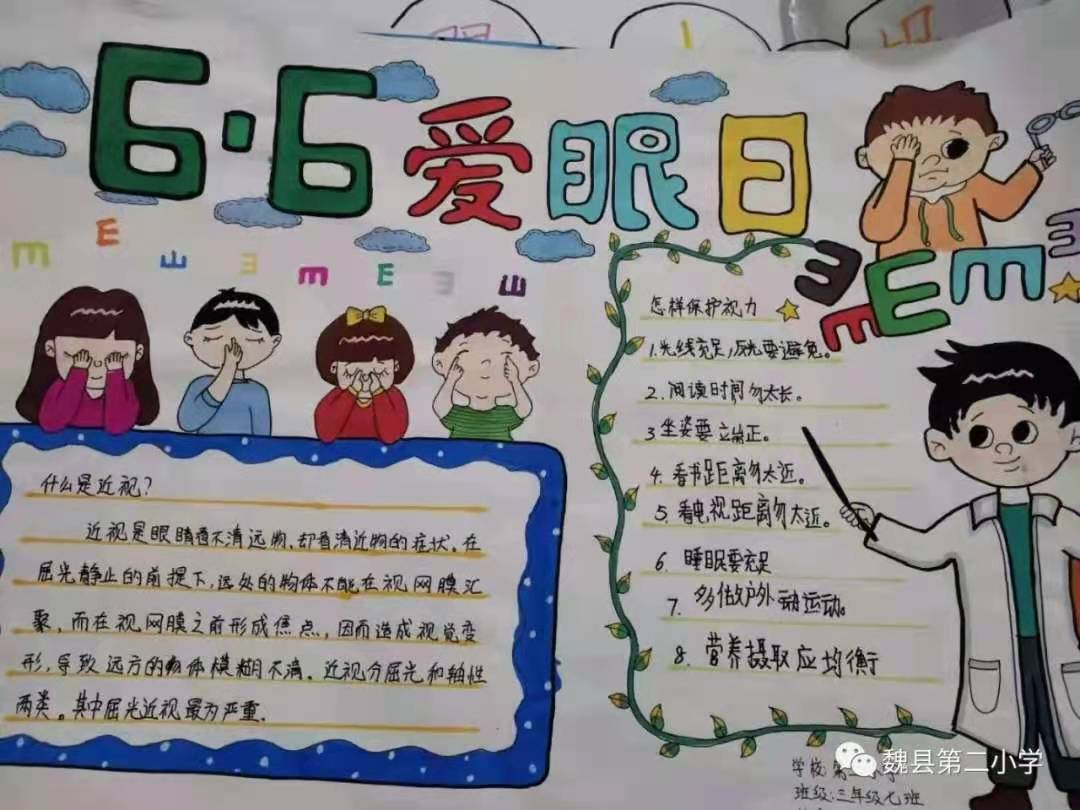 6·6爱眼日
E E E E E E E E
E E E E E
什么是近视?
近视是眼睛看不清远物、却看清近物的症状。在
屈光静止的前提下,远处的物体不能在视网膜汇
聚,而在视网膜之前形成焦点,因而造成视觉变
形,导致远方的物体模糊不清。近视分屈光和轴性
两类。其中屈光近视最为严重.
怎样保护视力
1.光线充足,反光要避免。
2.阅读时间勿太长。
3.坐姿要立端正。
4.看书距离勿太近。
5.看电视距离勿太近。
6.睡眠要充足
7.多做户外动运动。
8.营养摄取应均衡
学校:第二小学
班级:三年级七班
魏县第二小学